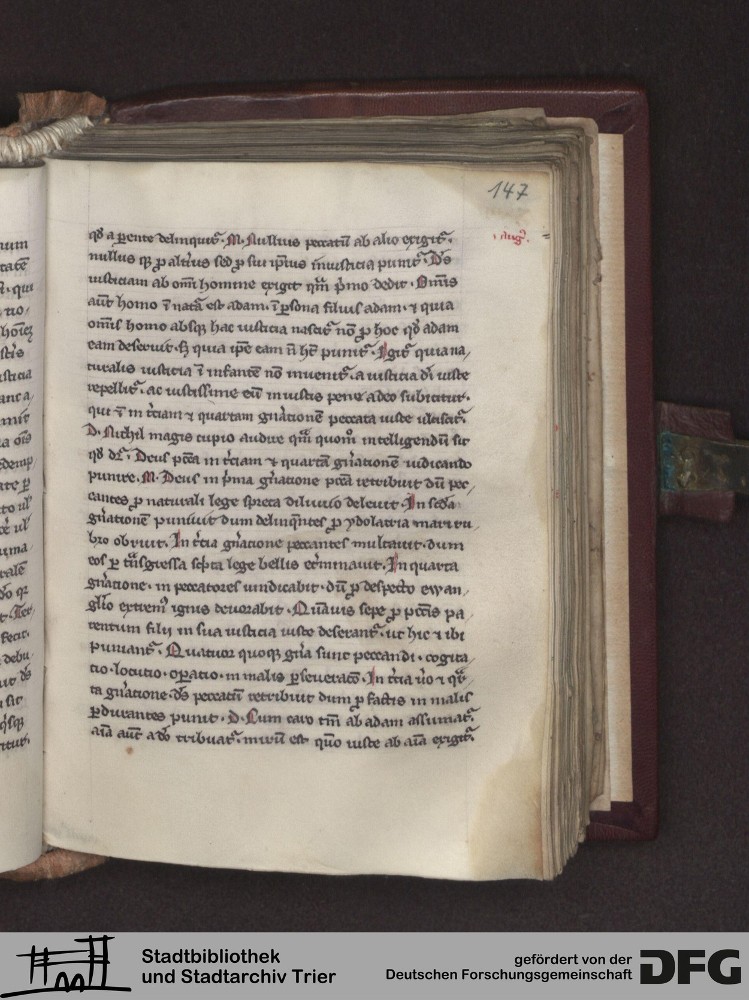 147
Aug᷎.
qđ a parente delinquit᷎. M. Nullius peccatū ab alio exigit᷎.
nullus q; p alterius sed p sui ipsius iniusticia punit᷎. Ds
iusticiam ab omi homine exigit qm pmo dedit. Omis
aut homo ī nata est adam. ī psona filius adam. ⁊ quia
omis homo absq; hac iusticia nascit᷎ nō p hoc qđ adam
eam deseruit. s; quia ipe eam n̄ ht punit᷎. Igit᷎ quia na/
turalis iusticia ī infante nō inuenit᷎. a iusticia di iuste
repellit᷎. ac iustissime eū iniustis pene a deo subicitur.
qui ⁊ in tciam ⁊ quartam gnatione peccata iuste ulciscit᷎.
D. Nichil magis cupio audire qm quom intelligendū sit
qđ dr. Deus pcca in tciam ⁊ quartā gnationē iudicando
punire. M. Deus in pma gnatione pcca retribuit dū pec/
cantes p naturali lege spreta diluuio deleuit. In scda
gnationē puniuit dum delinqntes p ydolatria mari ru/
bro obruit. In tcia gnatione peccantes multauit. dum
eos p tnsgressa scpta lege bellis exminauit. In quarta
gnatione. in peccatores uindicabit. dū p despecto ewan/
glio extrem ignis deuorabit. Quāuis sepe p pccis pa/
rentum filii in sua iusticia iuste deserant᷎. ut hic ⁊ ibi
puniant᷎. Quatuor quoq; gna sunt peccandi. cogita/
tio. locutio. opatio. in malis pseueratio. In tcia uo ⁊ qr/
ta gnatione. ds peccatū retribuit dum p factis in malis
pdurantes punit. D. Cum caro tm ab adam assumat᷎.
aīa aut a do tribuat᷎. mirū est quo iuste ab aīa exigit᷎.
Stadtbibliothek
und Stadtarchiv Trier
gefördert von der
Deutschen Forschungsgemeinschaft
DFG